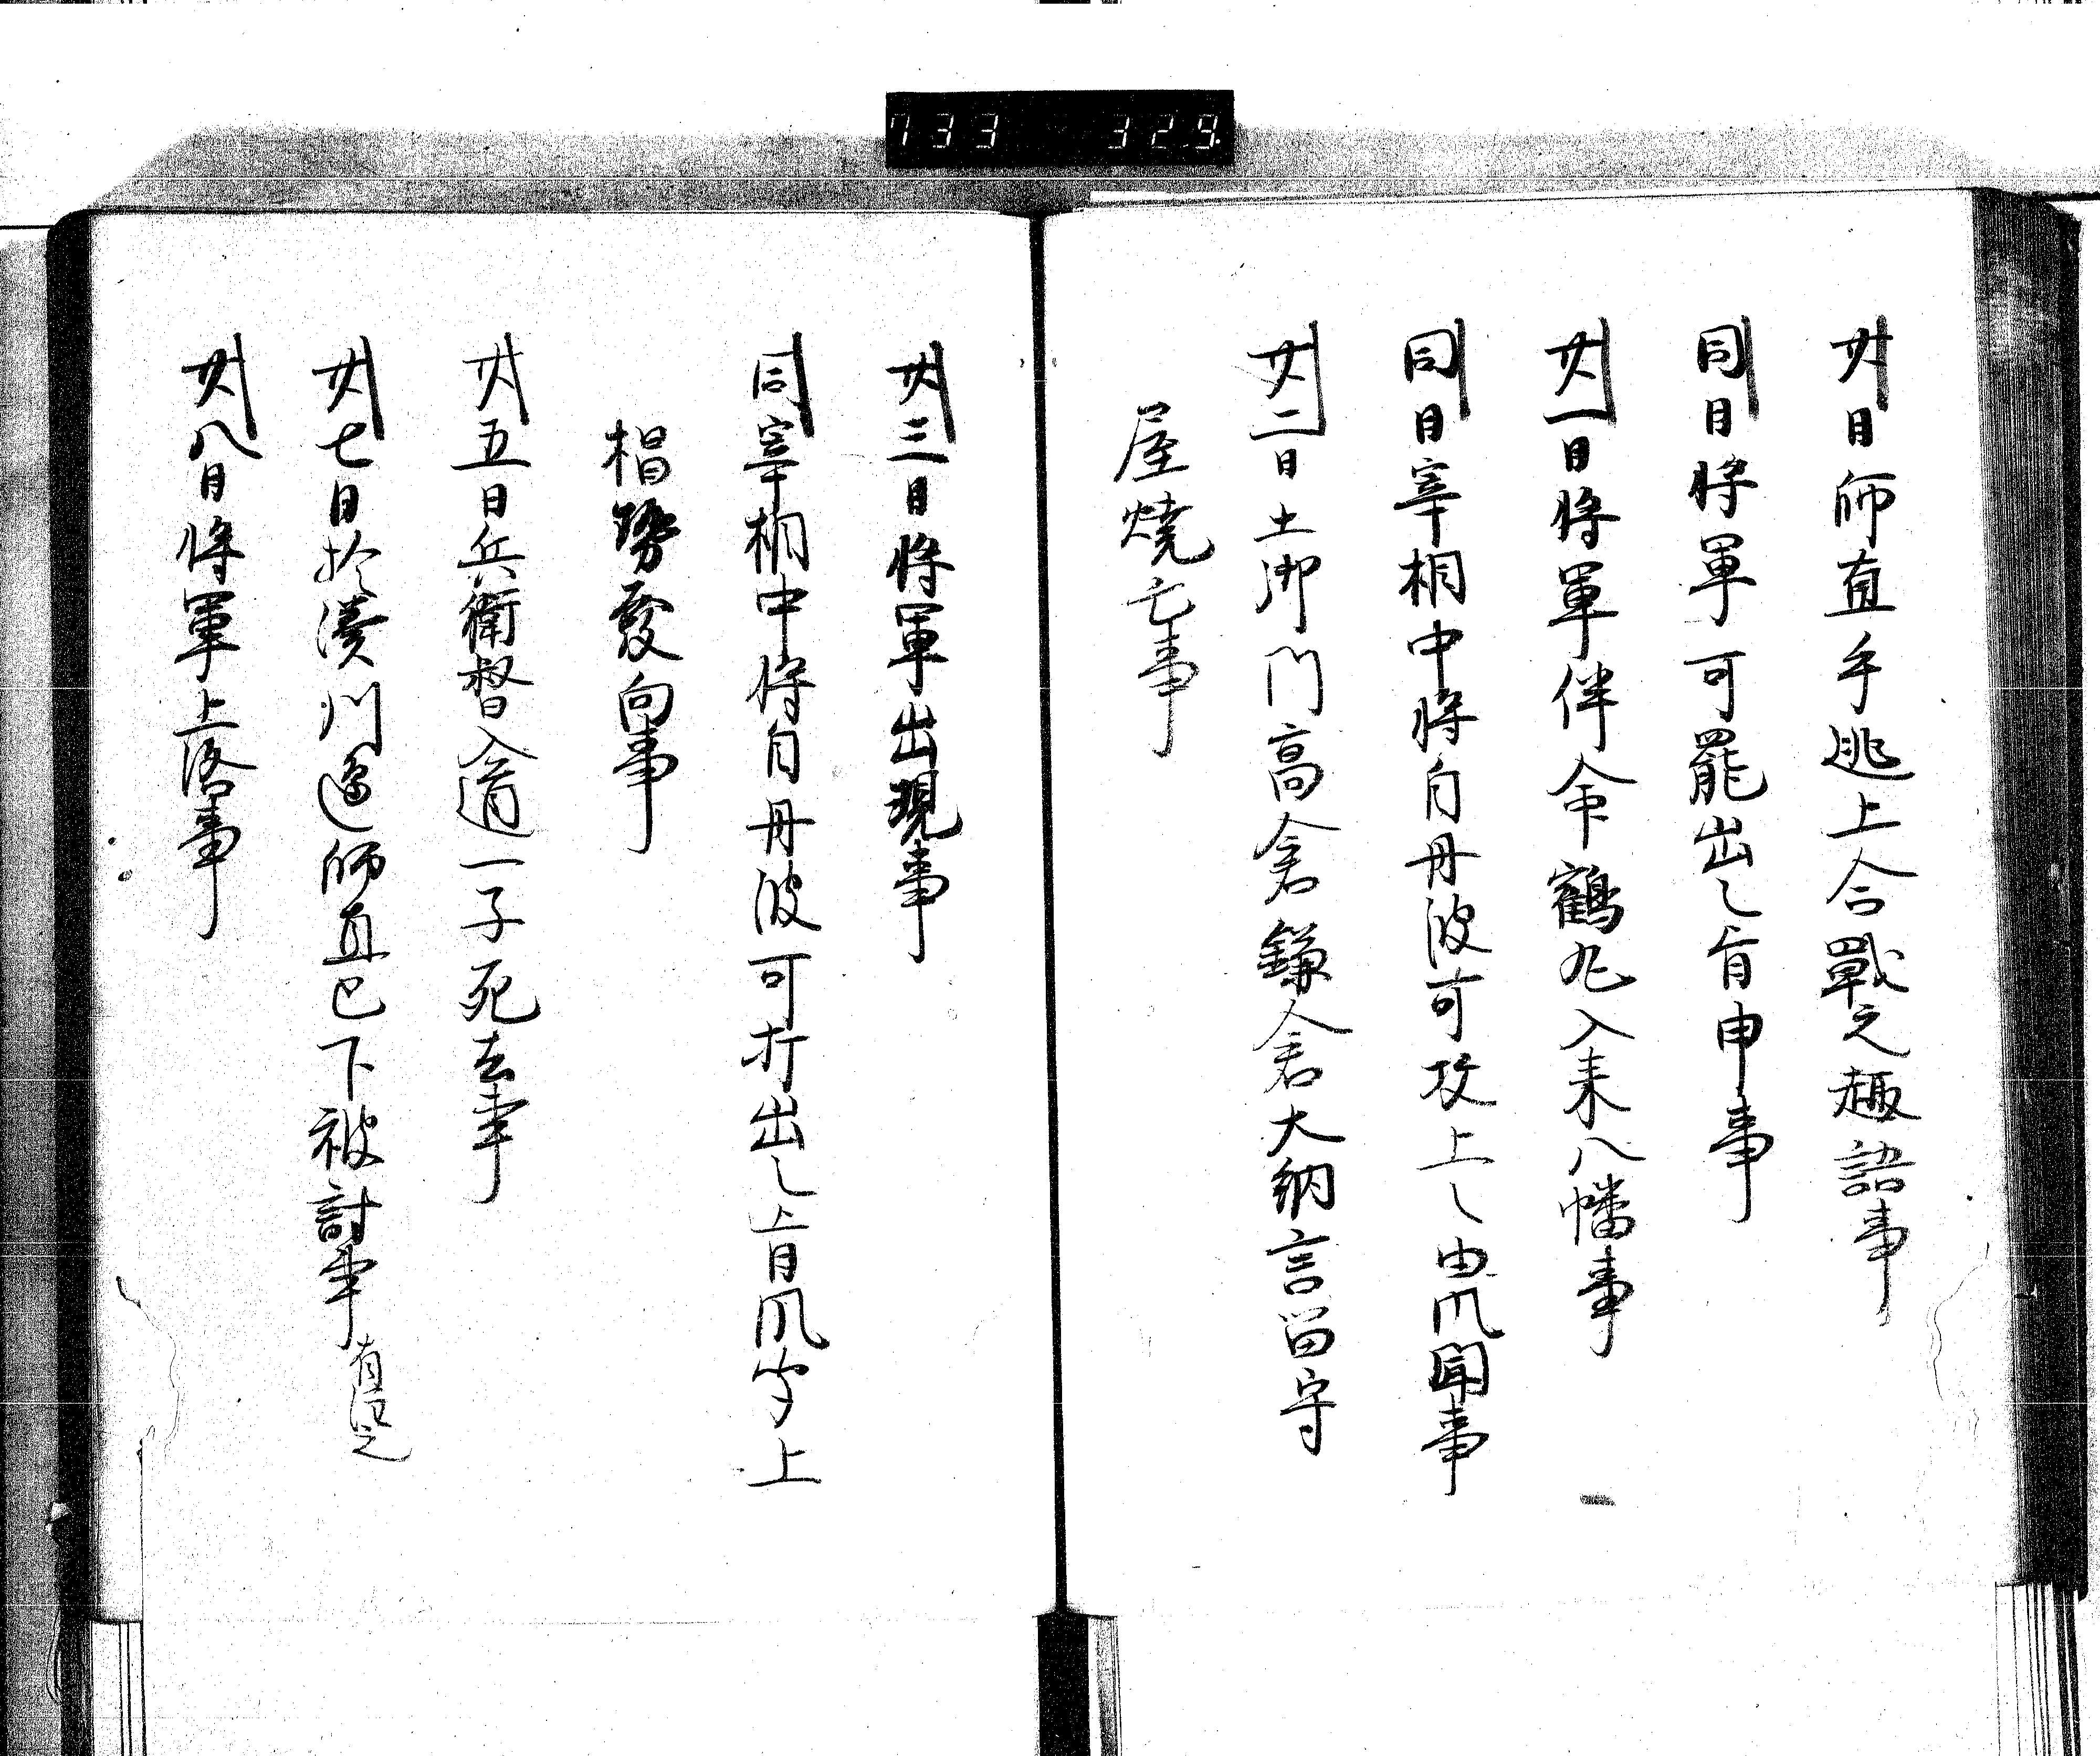 733 329
廿日師直手逃上合戰之趣語事
同日将軍可罷出之旨申事
廿一日将軍伴命鶴丸入来八幡事
同日宰相中将自丹波可攻上之由風聞事
廿二日土御門高倉鎌倉大納言留守
屋燒亡事
廿三日将軍出現事
同宰相中将自丹波可打出之旨風聞上
椙勢發向事
廿五日兵衛督入道一子死去事
廿七日於湊川邊師直已下被討事 有注之
廿八日将軍上洛事